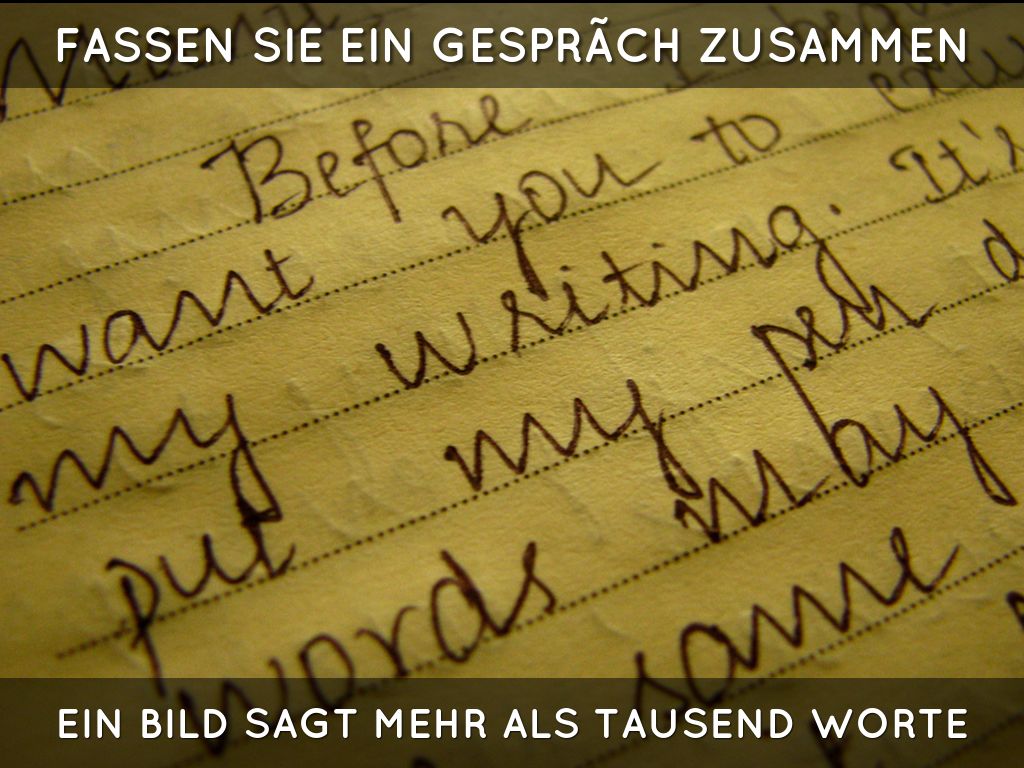 FASSEN SIE EIN GESPRÃCH ZUSAMMEN
Before I
want you to excu
my writing. It's
put my pen d
words
same
EIN BILD SAGT MEHR ALS TAUSEND WORTE